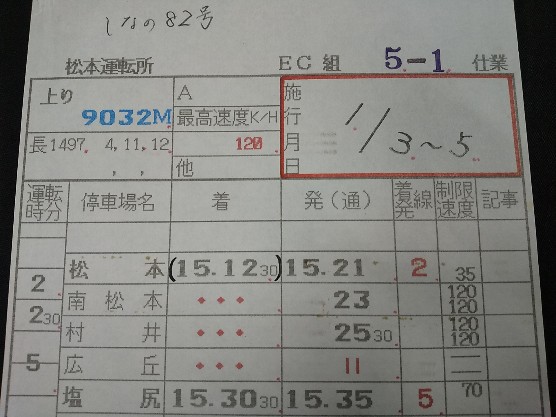 しなの82号
松本運転所 EC組 5-1 仕業
上り 9032M
長1497. 4, 11, 12
, ,
A
最高速度K/H
120
他
施行月日 1/3~5
運転時分 停車場名 着 発(通) 着発線 制限速度 記事
松本 (15.12 30) 15.21 2 35
2
南松本 ・・・ 23 120 120
2 30
村井 ・・・ 25 30 120 120
5
広丘 ・・・ 〃 — —
塩尻 15.30 30 15.35 5 70